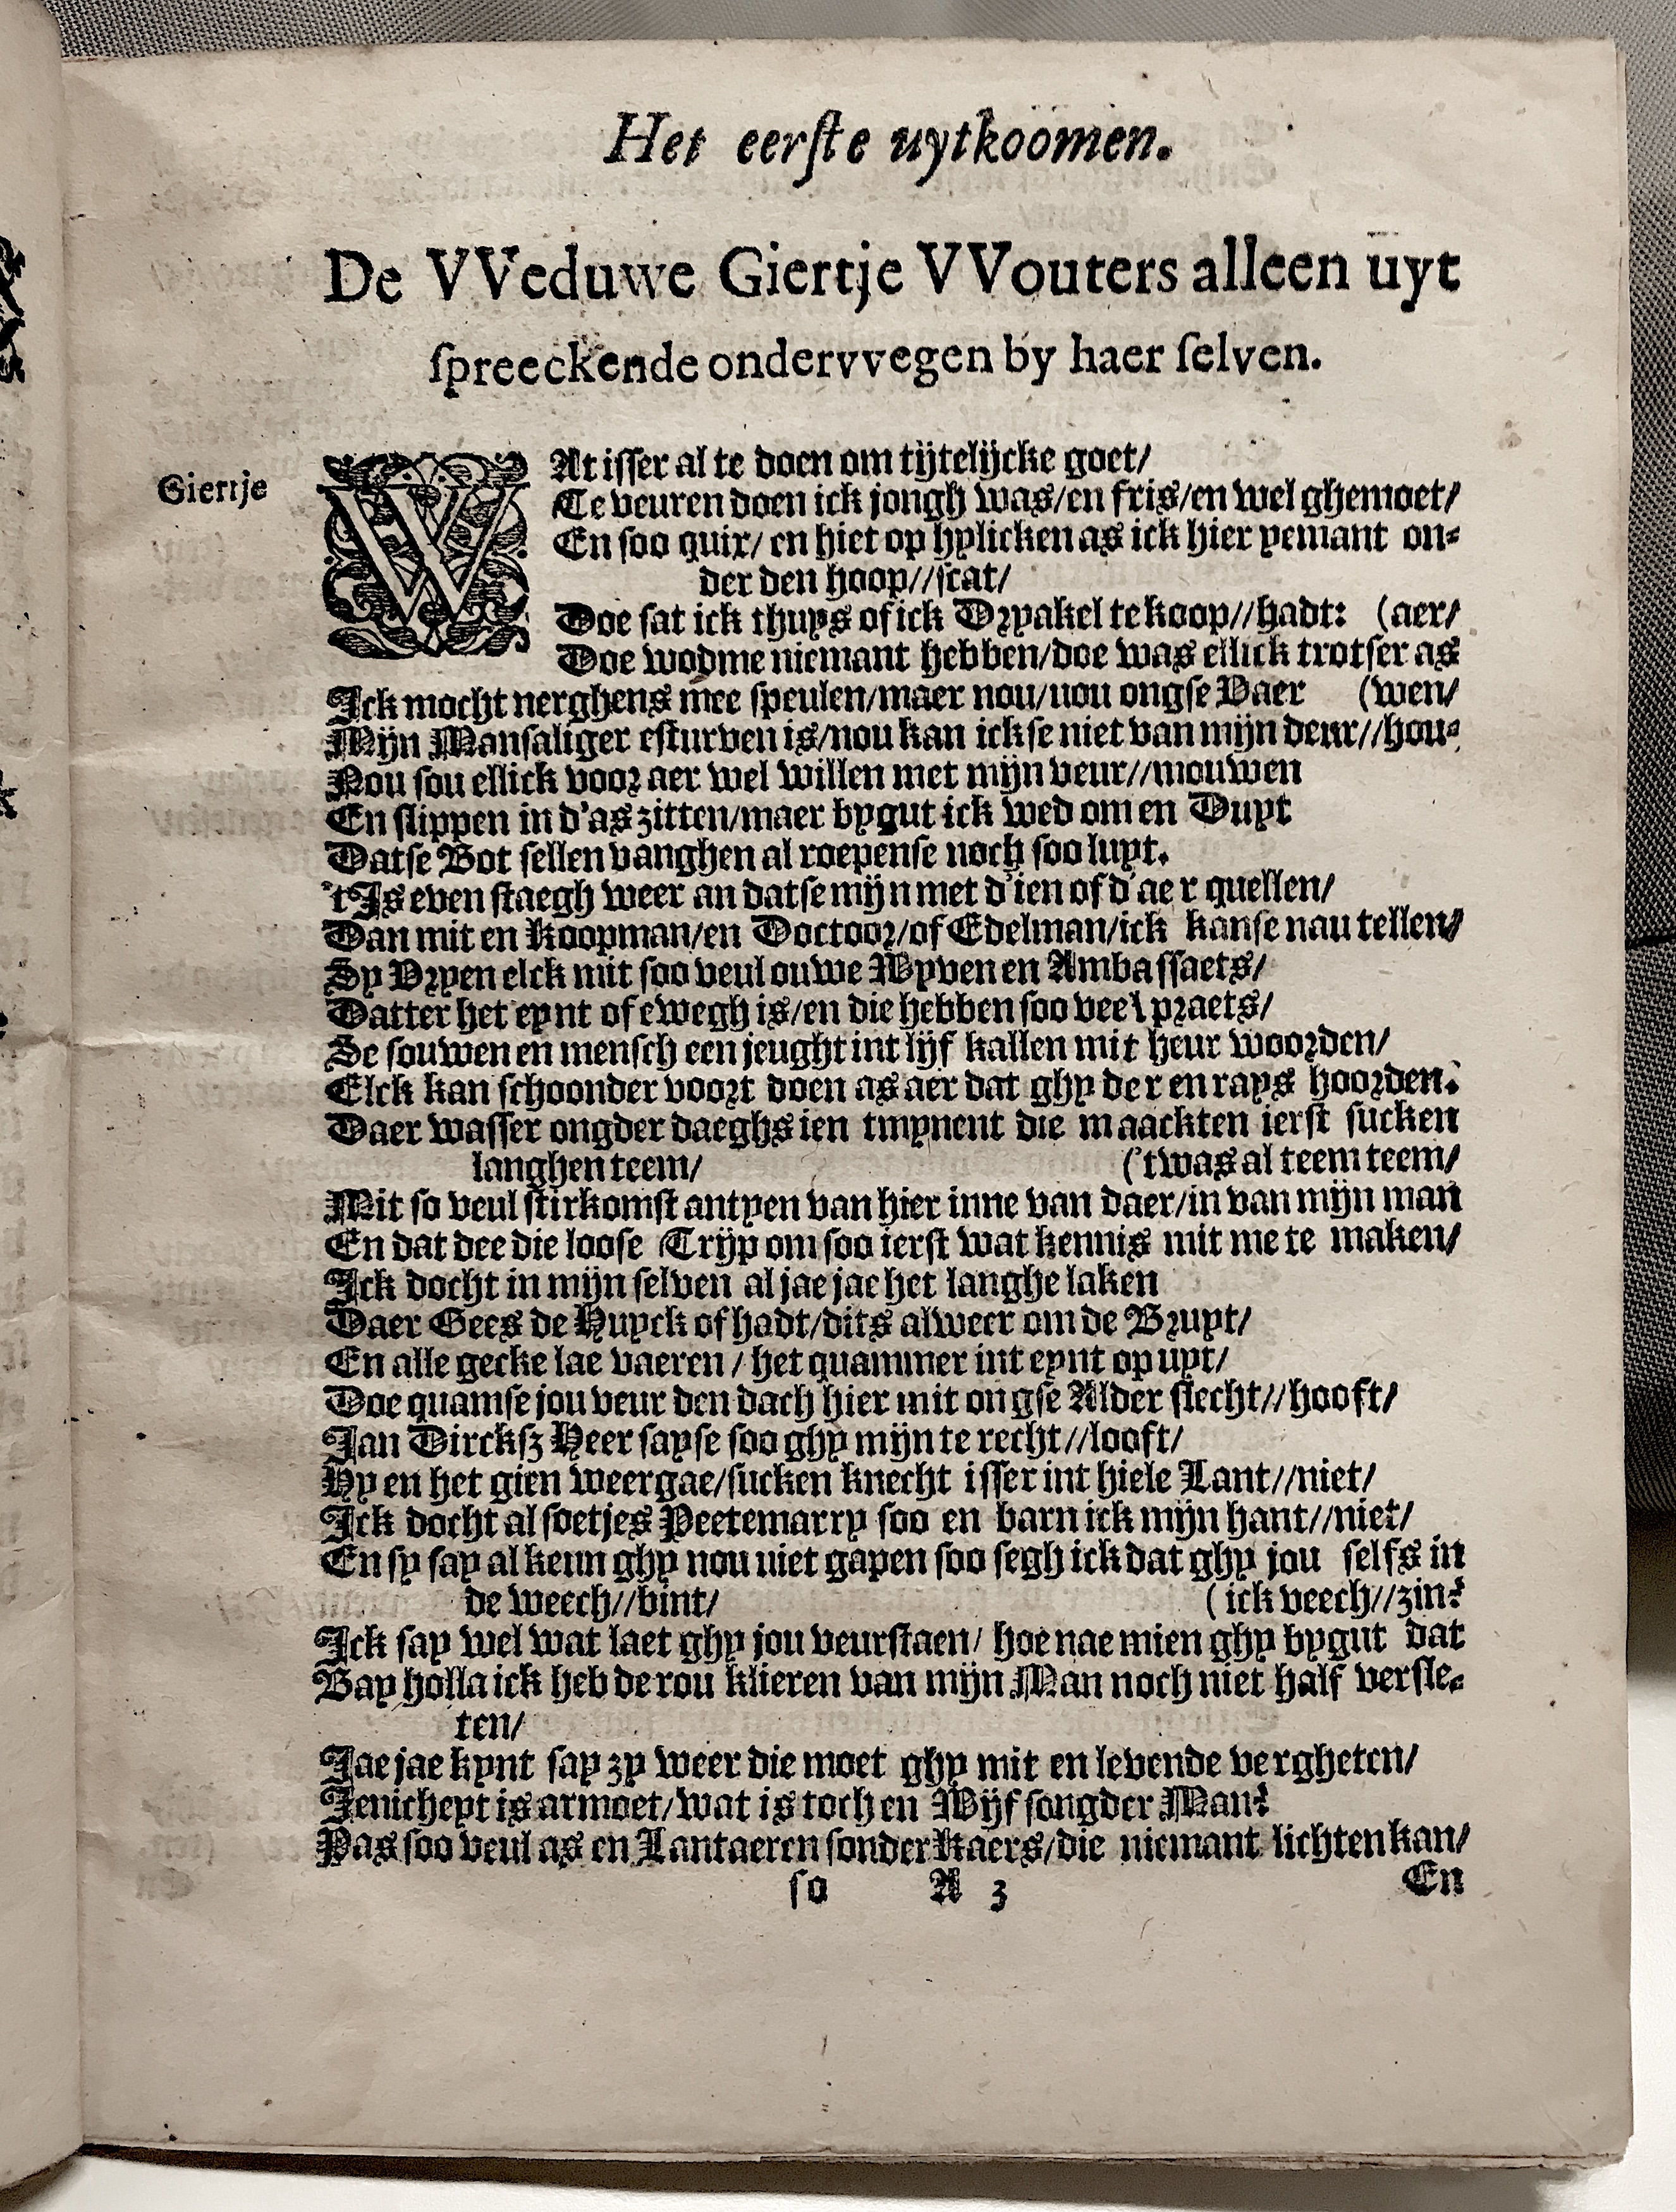 Het eerſte uytkoomen.
De VVeduwe Giertje VVouters alleen uyt
ſpreeckende ondervvegen by haer ſelven.
Giertje
WAt iſſer al te doen om tijtelijcke goet/
Te veuren doen ick jongh was/en fris/en wel ghemoet/
En ſoo quix/ en hiet op hylicken as ick hier yemant on⸗
der den hoop//ſcat/
Doe ſat ick thuys of ick Dryakel te koop//hadt: (aer/
Doe wodme niemant hebben/doe was ellick trotſer as
Ick mocht nerghens mee ſpeulen/maer nou/nou ongſe Vaer (wen/
Mijn Manſaliger eſturven is/nou kan ickſe niet van mijn deur//hou⸗
Nou ſou ellick voor aer wel willen met mijn veur//mouwen
En ſlippen in d'as zitten/maer bygut ick wed om en Duyt
Datſe Bot ſellen vanghen al roepenſe noch ſoo luyt.
't Is even ſtaegh weer an datſe mijn met d'ien of d'aer quellen/
Dan mit en Koopman/en Doctoor/of Edelman/ick kanſe nau tellen/
Sy Vryen elck mit ſoo veul ouwe Wyven en Ambaſſaets/
Datter het eynt of ewegh is/en die hebben ſoo veel praets/
Se ſouwen en menſch een jeught int lijf kallen mit heur woorden/
Elck kan ſchoonder voort doen as aer dat ghy der en rays hoorden.
Daer waſſer ongder daeghs ien tmynent die maackten ierſt ſucken
langhen teem/ ('twas al teem teem/
Mit ſo veul ſtirkomſt antyen van hier inne van daer/in van mijn man
En dat dee die looſe Trijp om ſoo ierſt wat kennis mit me te maken/
Ick docht in mijn ſelven al jae jae het langhe laken
Daer Gees de Huyck of hadt/dits alweer om de Bruyt/
En alle gecke lae vaeren / het quammer int eynt op uyt/
Doe quamſe jou veur den dach hier mit ongſe Alder ſlecht//hooft/
Jan Dirckſz Heer ſayſe ſoo ghy mijn te recht//looft/
Hy en het gien weergae/ſucken knecht iſſer int hiele Lant//niet/
Ick docht al ſoetjes Peetemarry ſoo en barn ick mijn hant//niet/
En ſy ſay al kenn ghy nou niet gapen ſoo ſegh ick dat ghy jou ſelfs in
de weech//bint/ (ick veech//zin?
Ick ſay wel wat laet ghy jou veurſtaen/ hoe nae mien ghy bygut dat
Bay holla ick heb de rou klieren van mijn Man noch niet half verſle⸗
ten/
Jae jae kynt ſay zy weer die moet ghy mit en levende vergheten/
Jenicheyt is armoet/wat is toch en Wijf ſongder Man?
Pas ſoo veul as en Lantaeren ſonder Kaers/die niemant lichten kan/
ſo A 3 En